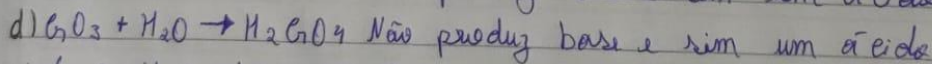 d) CrO₃ + H₂O → H₂CrO₄ Não produz base e sim um ácido